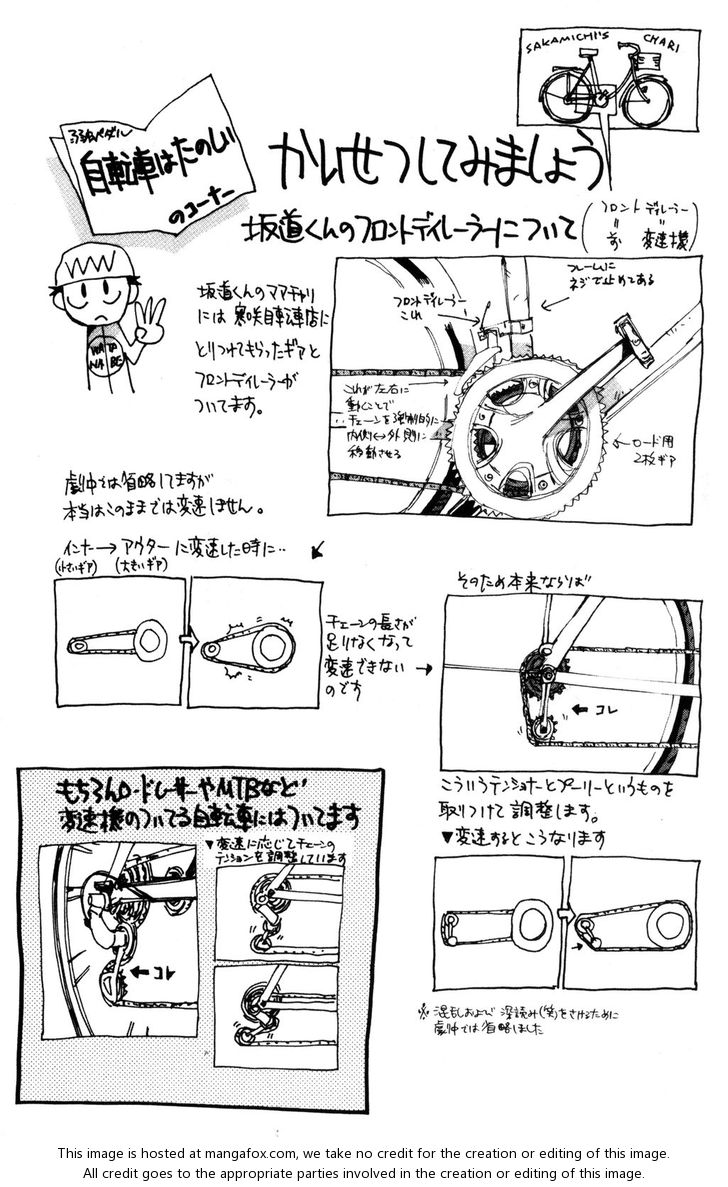 SAKAMICHI'S CHARI
弱虫ペダル
自転車はたのしい
のコーナー
かいせつしてみましょう
坂道くんのフロントディレーラーについて
フロントディレーラー
＝
前 変速機
WATA
NABE
坂道くんのママチャリ
には寒咲自転車店に
とりつけてもらったギアと
フロントディレーラーが
ついてます。
フロントディレーラー
これ
フレームに
ネジで止めてある
これが左右に
動くことで
チェーンを強制的に
内側↔外側に
移動させる
ロード用
2枚ギア
劇中では省略してますが
本当はこのままでは変速しません。
インナー→アウターに変速した時に‥
(小さいギア) (大きいギア)
チェーンの長さが
足りなくなって
変速できない
のです
そのため本来ならば
コレ
こういうテンショナーとプーリーというものを
取りつけて調整します。
▼変速するとこうなります
もちろんロードレーサーやMTBなど
変速機のついてる自転車にはついてます
▼変速に応じてチェーンの
テンションを調整しています
コレ
※混乱および深読み(笑)をさけるために
劇中では省略しました
This image is hosted at mangafox.com, we take no credit for the creation or editing of this image.
All credit goes to the appropriate parties involved in the creation or editing of this image.